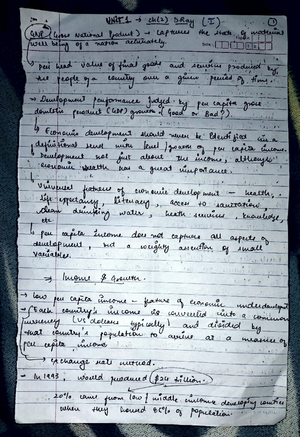 UNIT 1 → ch(2) DRay (I) ①
GNP (Gross National Product) → captures the state of material
well being of a nation
Date
per head value of final goods and services produced by
the people of a country over a given period of time.
→ Development performance judged by per capita gross
domestic product (GDP) growth (Good or Bad?)
Economic development should never be identified in a
definitional sense with level/growth of per capita income.
Development not just about the income, although
economic wealth has a great importance.
Universal features of economic development - health,
life expectancy, literacy, access to sanitation
clean drinking water, health services, knowledge,
etc
per capita income does not capture all aspects of
development, not a weighty assertion of small
variables.
→ Income & Growth.
→ low per capita income - feature of economic underdevelopment
→ Each country's income is converted into a common
currency (US dollars typically) and divided by
that country's population to arrive at a measure of
per capita income
exchange rate method.
→ In 1993, world produced $24 trillion.
20% came from low / middle income developing countries
when they housed 85% of population.